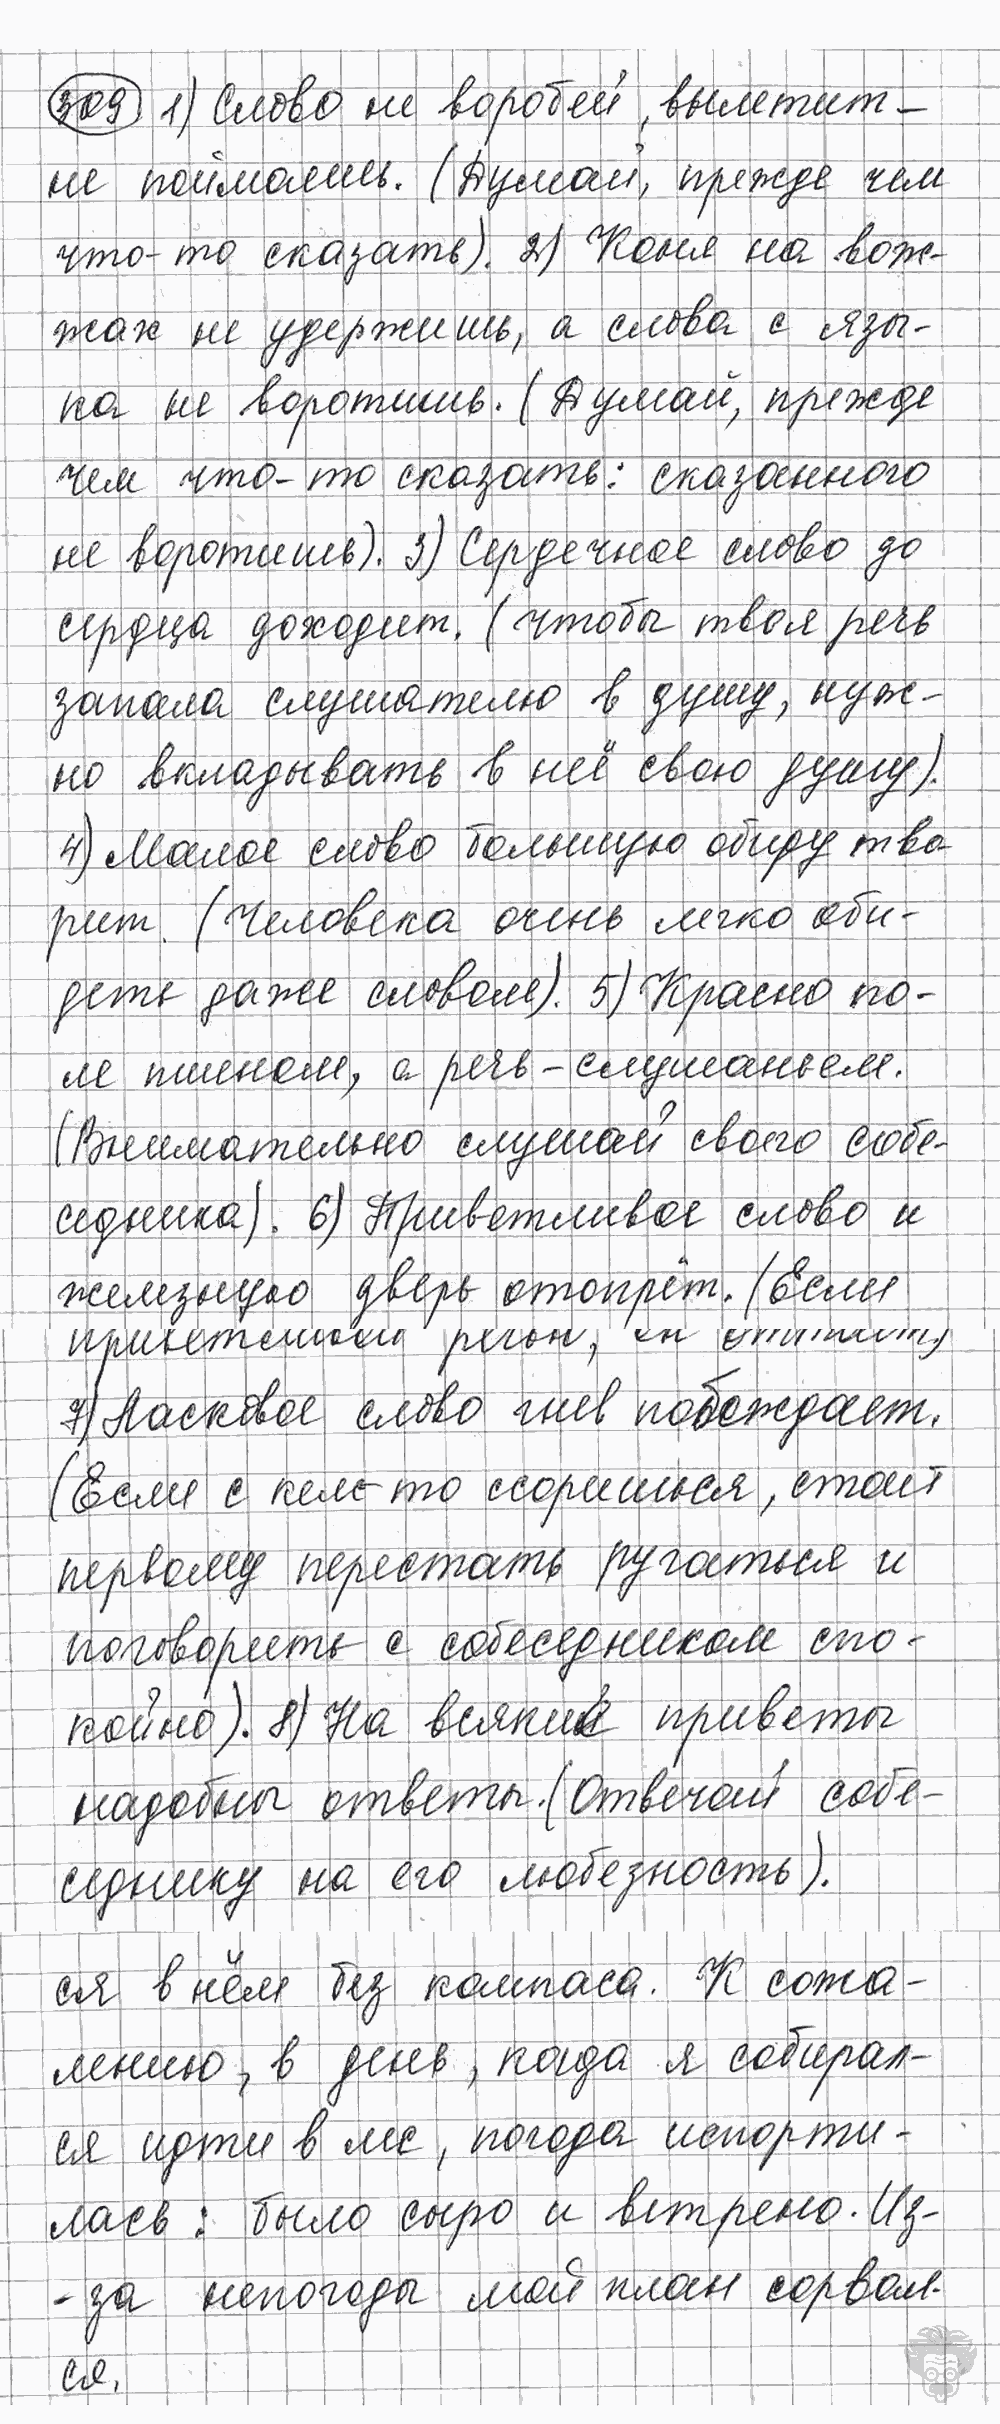 309 1) Слово не воробей, вылетит –
не поймаешь. (Думай, прежде чем
что-то сказать). 2) Коня на вож-
жах не удержишь, а слова с язы-
ка не воротишь. (Думай, прежде
чем что-то сказать: сказанного
не воротишь). 3) Сердечное слово до
сердца доходит. (Чтобы твоя речь
запала слушателю в душу, нуж-
но вкладывать в неё свою душу).
4) Малое слово большую обиду тво
рит. (Человека очень легко оби-
деть даже словом). 5) Красно по-
ле пшеном, а речь – слушаньем.
(Внимательно слушай своего собе-
седника). 6) Приветливое слово и
железную дверь отопрёт. (Если
7) Ласковое слово гнев побеждает.
(Если с кем-то ссоришься, стоит
первому перестать ругаться и
поговорить с собеседником спо-
койно). 8) На всякий приветы
надобны ответы. (Отвечай собе-
седнику на его любезность).
ся в нём без компаса. К сожа-
лению, в день, когда я собирал-
ся идти в лес, погода испорти-
лась: было сыро и ветрено. Из-
-за непогоды мой план сорвал-
ся.